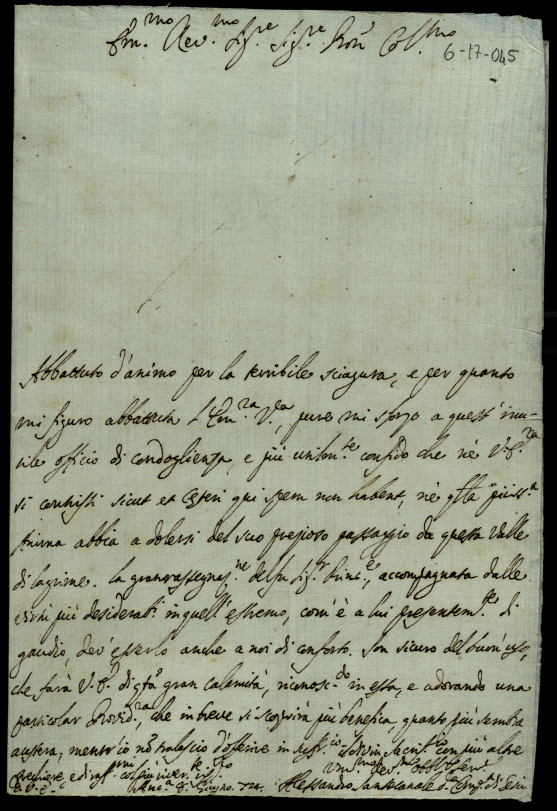 Em.mo Rev.mo Sig.re Sig.re Pron Col.mo
6-17-045
Abbattuto d'animo per la terribile sciagura, e per quanto
mi figuro abbattuta l'Em.za V.ra, pure mi sforzo a quest'inu-
tile officio di condoglienza, e più confido che nè V.E.
si contristi sicut et ceteri qui spem non habent, nè q.lla piiss.a
anima abbia a dolersi del suo prezioso passaggio da questa Valle
di lagrime. La gran rassegnaz.ne del Sig.r Princ.e, accompagnata dalle
virtù più desiderab.i in quell'estremo, com'è a lui presentem.te di
gaudio, dev'esserlo anche a noi di conforto. Son sicuro del buon uso,
che farà V.E. di q.ta gran calamità, riconosc.do in essa, e adorando una
particolar Provid.za, che in breve si scoprirà più benefica, quanto più sembra
austera, mentr'io nō tralascio d'offerire in suffr.io con più altre
preghiere, e di rass.mi col più river.te risp.to
D. V. E. Anc.a 8. Giugno. 72. Um.mo Dev.mo Obbl.mo Serv.e
Alessandro d.a Comp.a di Gesù